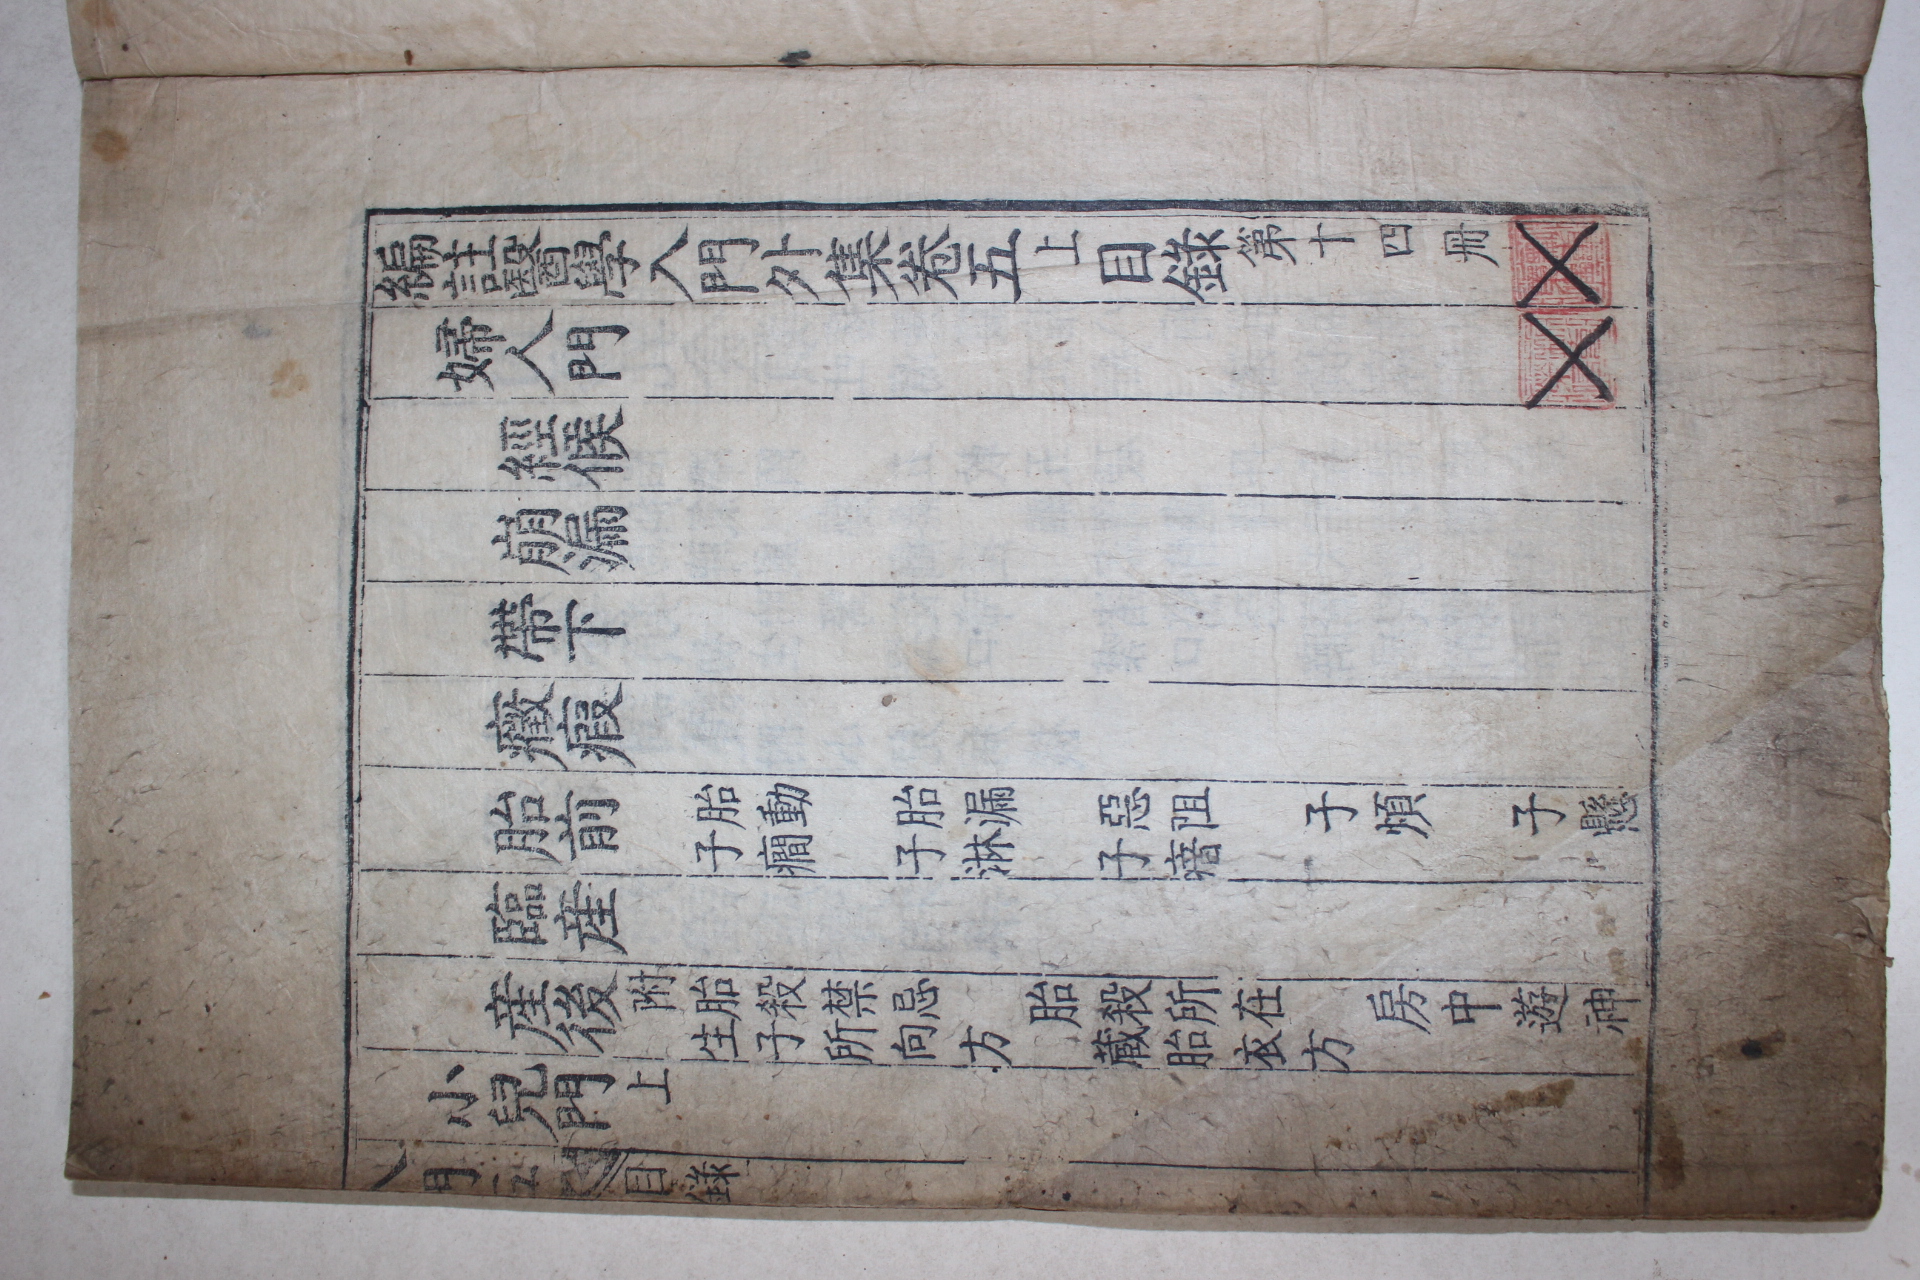 編註醫學入門外集卷五上目錄第十四冊
婦人門
經候
崩漏
帶下
癥瘕
胎前 胎動 子癇 胎漏 子淋 惡阻 子瘖 子煩 子懸
臨產
產後附 胎殺禁忌 生子所向方 胎殺所在 藏胎衣方 房中遊神
小兒門上
入門五 目錄